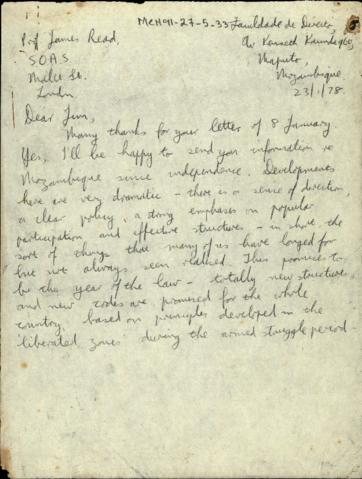 MCH91-27-5-33 Faculdade de Direito,
Prof James Read,
Av Kenneth Kaunda 960,
S.O.A.S.
Maputo,
Malet St.
Mozambique.
London
23/1/78
Dear Jim,
Many thanks for your letter of 8 January
Yes, I'll be happy to send you information re
Mozambique since independence. Developments
here are very dramatic - there is a sense of direction,
a clear policy, a strong emphasis on popular
participation and effective structures - in short the
sort of things that many of us have longed for
but not always seen realised. This promises to
be the year of the law - totally new structures
and new codes are promised for the whole
country, based on principles developed in the
liberated zones during the armed struggle period.